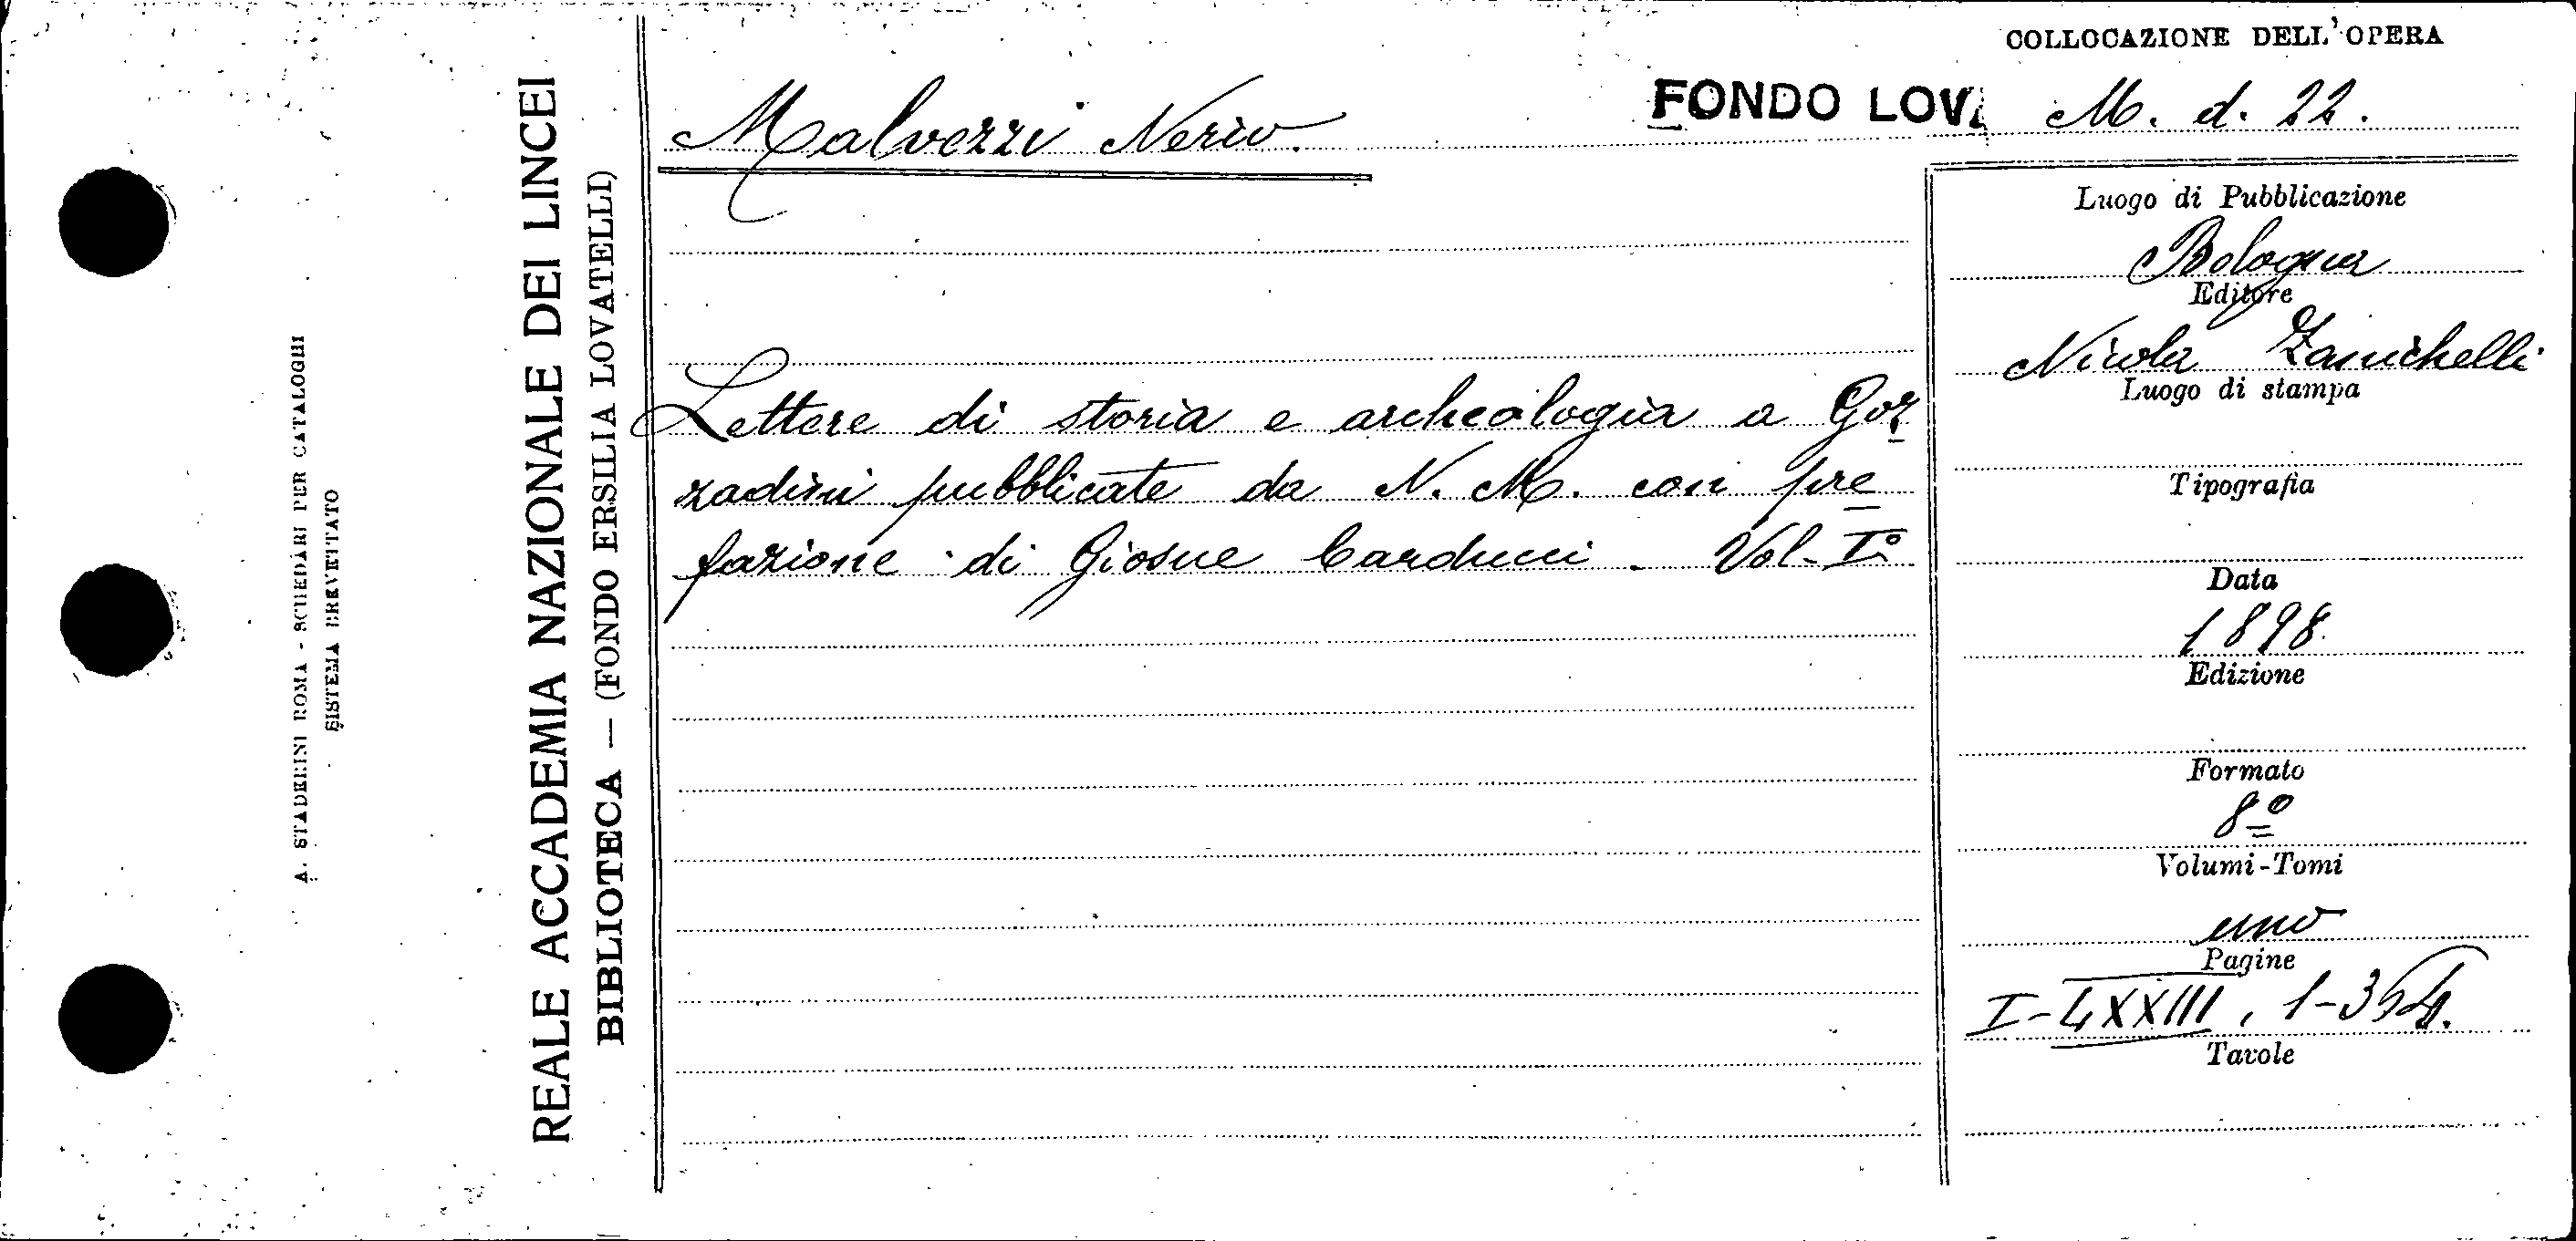 COLLOCAZIONE DELL'OPERA
FONDO LOV. M. d. 22.
Malvezzi Nerio.
Lettere di storia e archeologia a Goz
zadini pubblicate da N. M. con pre
fazione di Giosue Carducci - Vol. I°
Luogo di Pubblicazione
Bologna
Editore
Nicola Zanichelli
Luogo di stampa
Tipografia
Data
1898.
Edizione
Formato
8º
Volumi-Tomi
uno
Pagine
I-LXXIII, 1-354.
Tavole
REALE ACCADEMIA NAZIONALE DEI LINCEI
BIBLIOTECA — (FONDO ERSILIA LOVATELLI)
A. STADERINI ROMA - SCHEDARI PER CATALOGHI
SISTEMA BREVETTATO